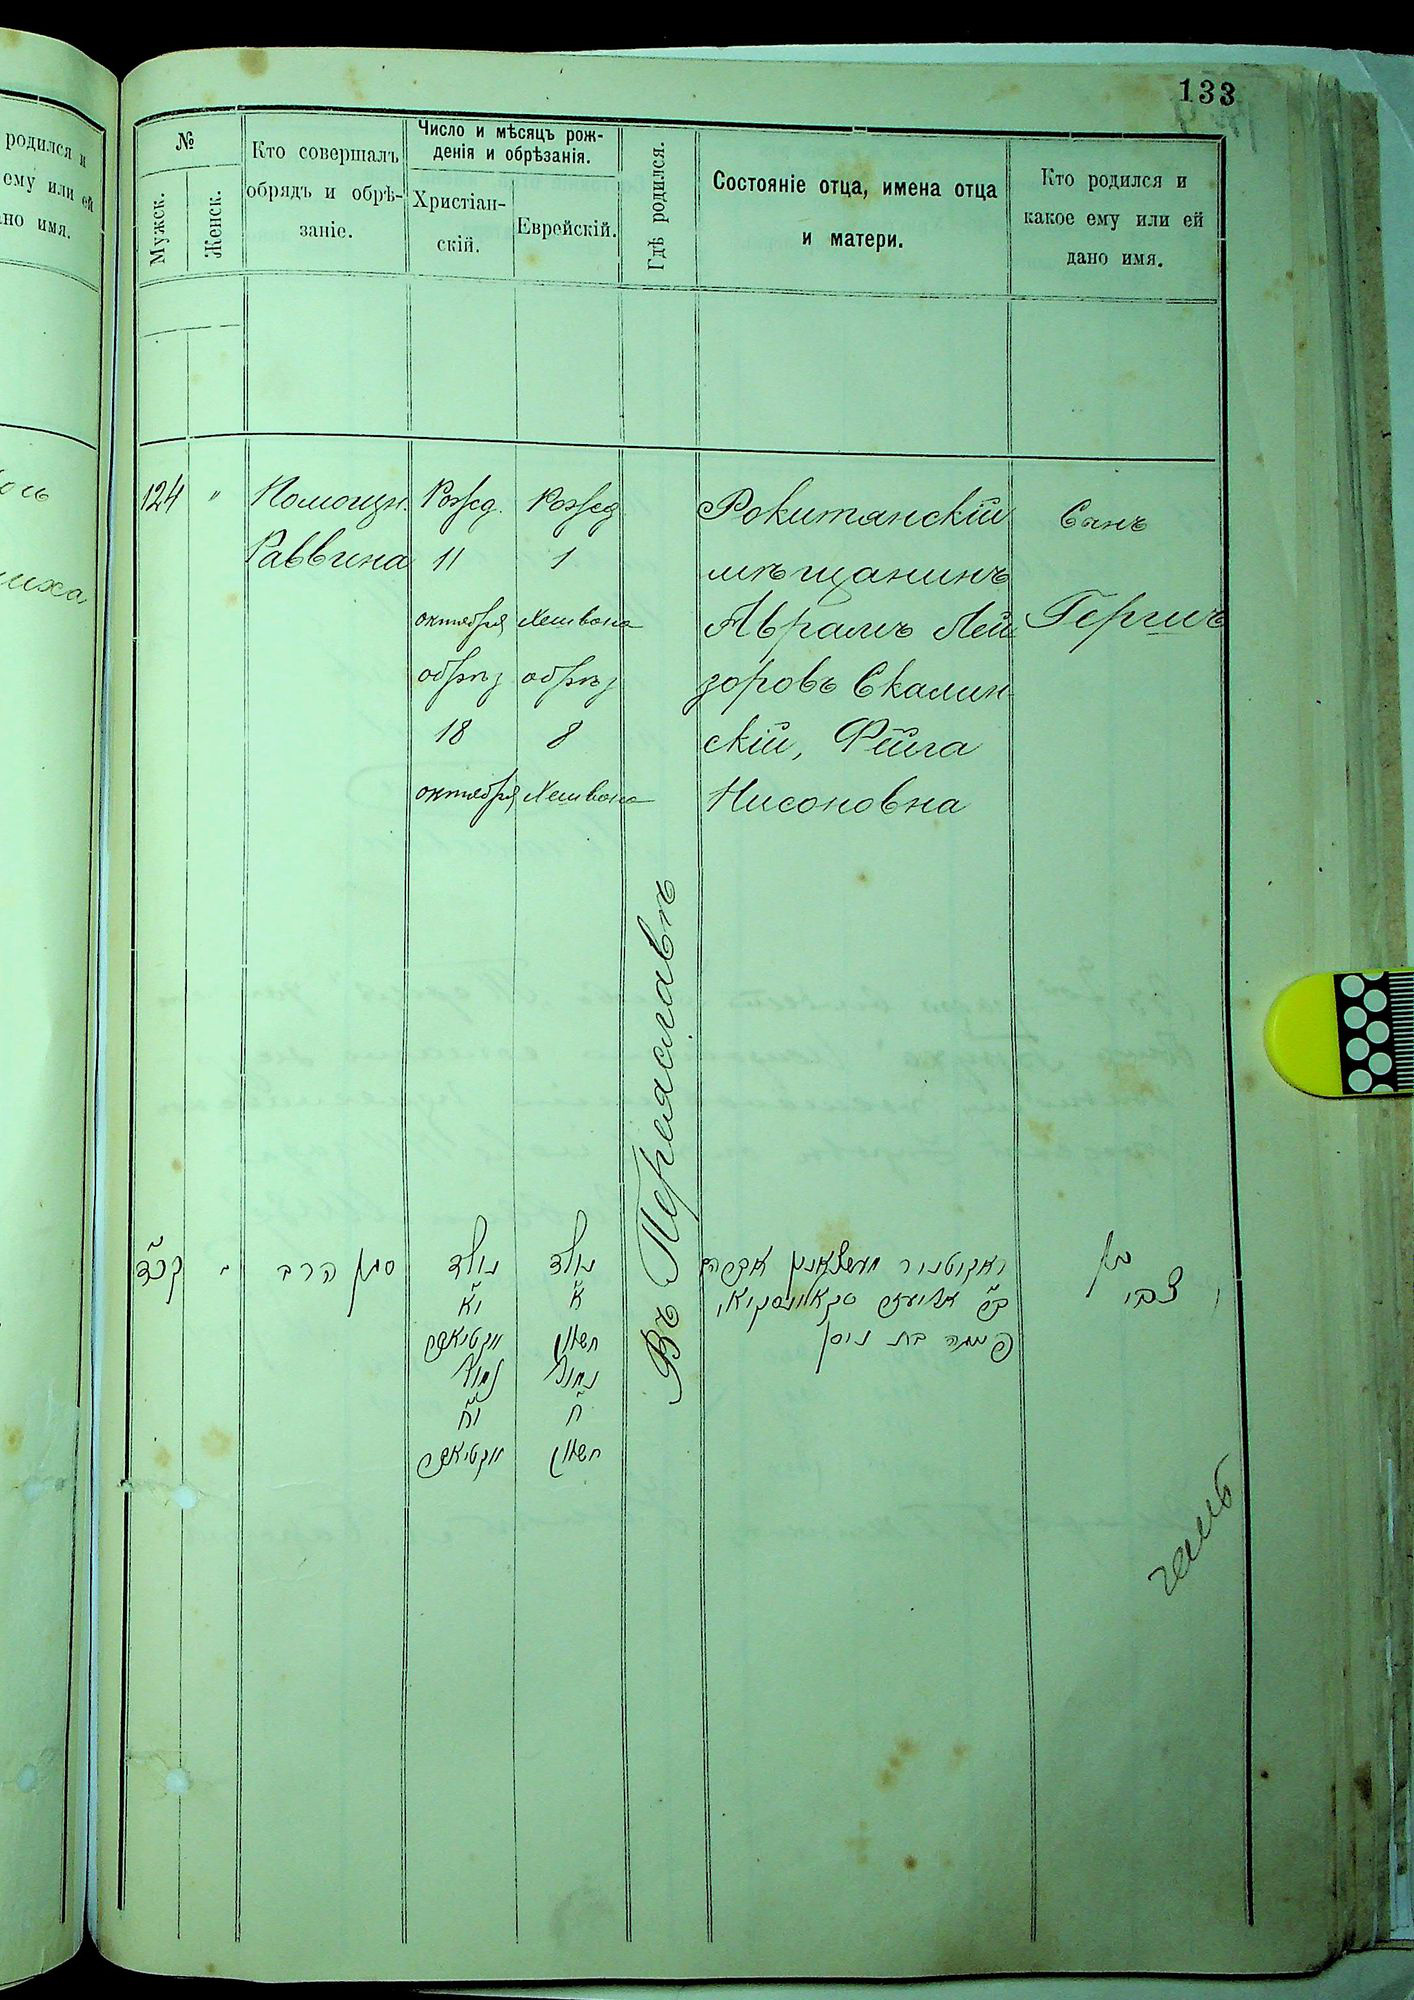 133
родился и
ему или ей
ано имя.
№
Мужск.
Женск.
Кто совершалъ
обрядъ и обрѣ-
заніе.
Число и мѣсяцъ рож-
денія и обрѣзанія.
Христіан-
скій.
Еврейскій.
Гдѣ родился.
Состояніе отца, имена отца
и матери.
Кто родился и
какое ему или ей
дано имя.
124
"
Помощн.
Раввина
Рожд.
11
октября
обрѣз
18
октября
Рожд
1
Хешвана
обрѣз
8
Хешвана
Въ Переяславѣ
Рокитанскій
мѣщанинъ
Аврамъ Лей
зоровъ Скалин-
скій, Фейга
Нисоновна
Сынъ
Гершъ
קכ״ד
סגן הרב
נולד
י״א
נימול
י״ח
נולד
א׳
חשון
נימול
ח׳
חשון
אברהם
בת ניסן
בן
צבי